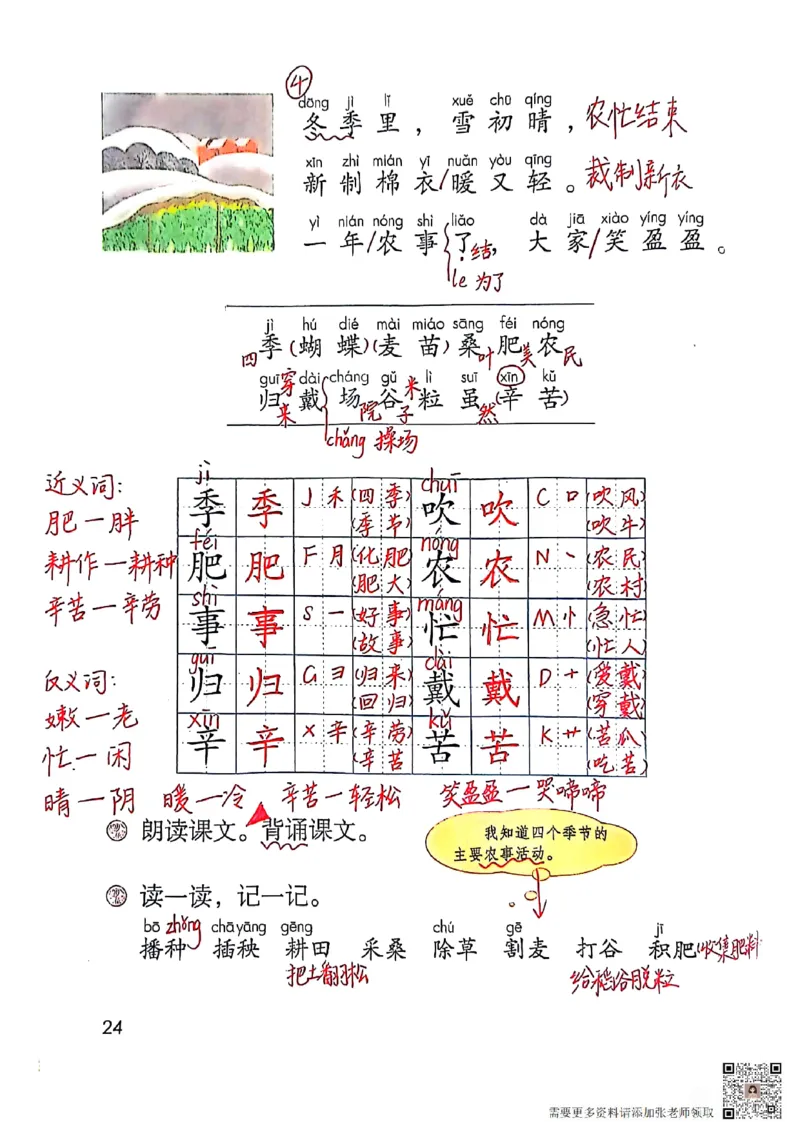 ④
dōng jì lǐ xuě chū qíng
冬季里，雪初晴，农忙结束
xīn zhì mián yī nuǎn yòu qīng
新制棉衣/暖又轻。裁制新衣
yì nián nóng shì liǎo dà jiā xiào yíng yíng
一年/农事了结，大家/笑盈盈。
le 为了
jì hú dié mài miáo sāng féi nóng
四季(蝴蝶)(麦苗)桑叶肥美农民
guī dài cháng gǔ lì suī xīn kǔ
归来穿戴场院谷子米粒虽然(辛苦)
chǎng 操场
近义词：
肥—胖
耕作—耕种
辛苦—辛劳
反义词：
嫩—老
忙—闲
晴—阴 暖—冷 辛苦—轻松 笑盈盈—哭啼啼
jì chuī
季 季 J 禾 (四季) 吹 吹 C 口 (吹风)
(季节) (吹牛)
féi nóng
肥 肥 F 月 (化肥) 农 农 N 丶 (农民)
(肥大) (农村)
shì máng
事 事 S 一 (好事) 忙 忙 M 忄 (急忙)
(故事) (忙人)
guī dài
归 归 G 彐 (归来) 戴 戴 D 十 (爱戴)
(回归) (穿戴)
xīn kǔ
辛 辛 X 辛 (辛劳) 苦 苦 K 艹 (苦瓜)
(辛苦) (吃苦)
朗读课文。背诵课文。
我知道四个季节的
主要农事活动。
读一读，记一记。
bō zhòng chā yāng gēng chú gē jī
播种 插秧 耕田 采桑 除草 割麦 打谷 积肥(收集肥料)
把土翻松 给稻谷脱粒
24
需要更多资料请添加张老师领取